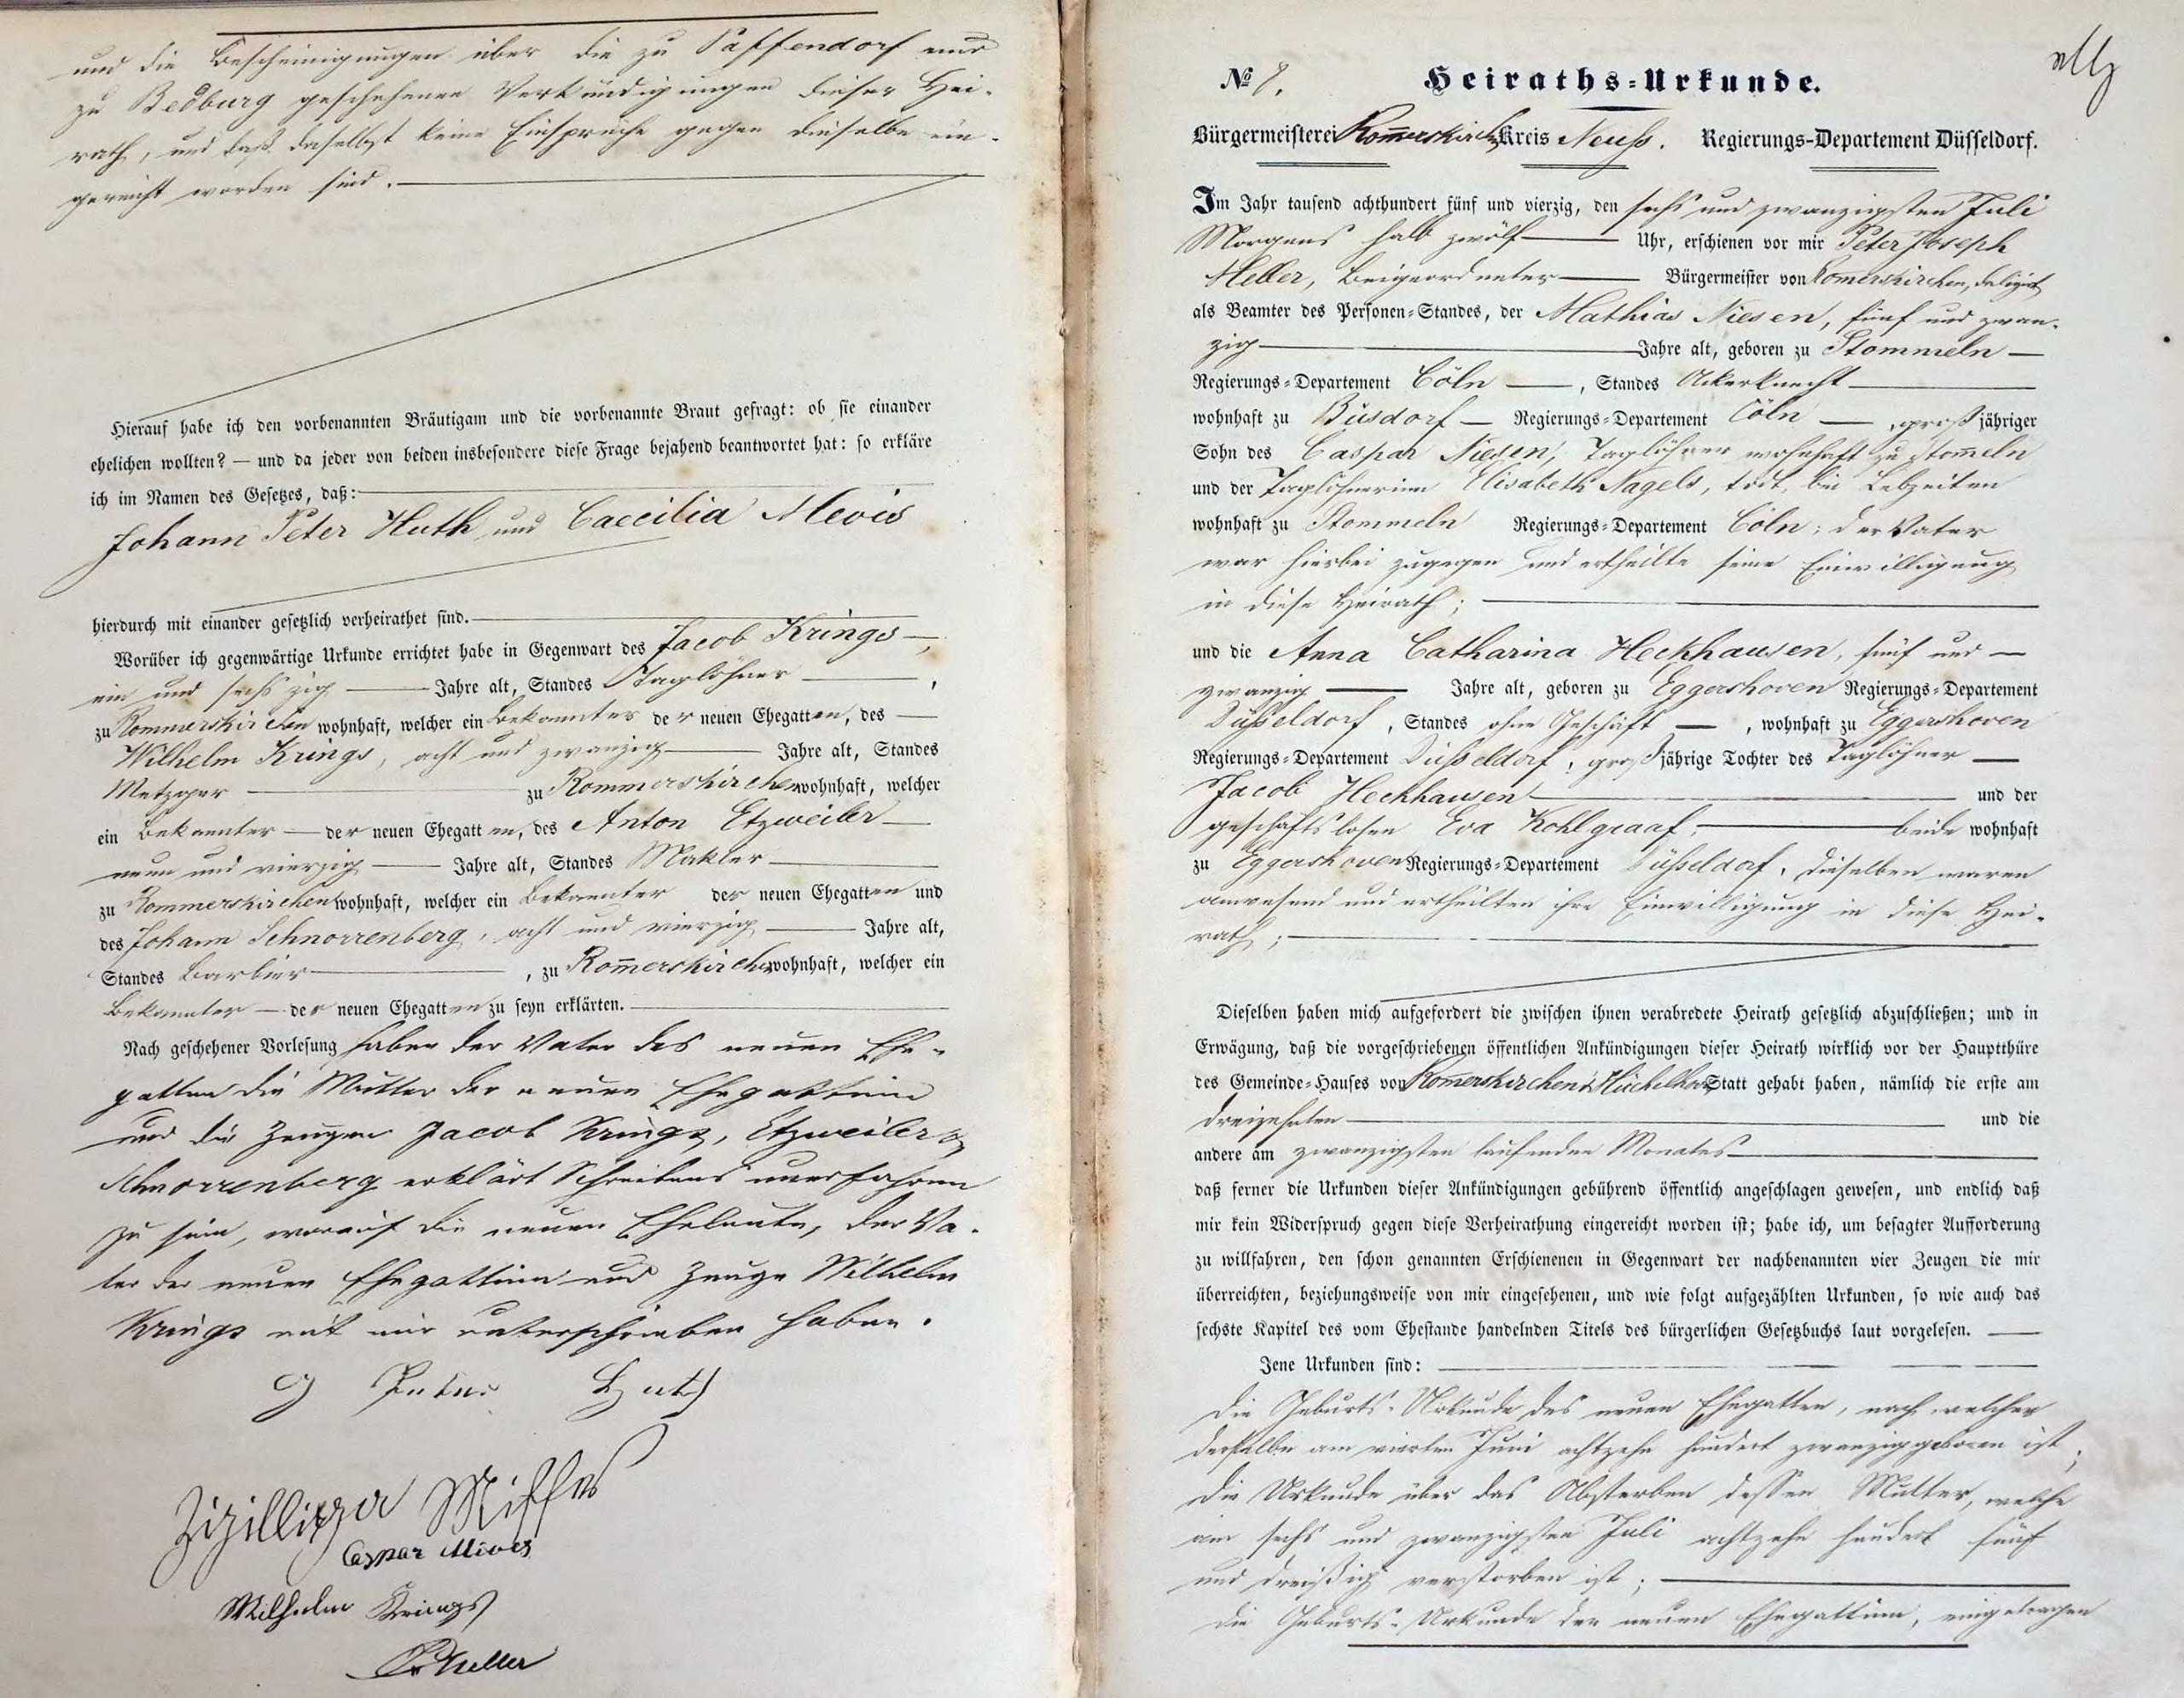 und die Bescheinigungen über die zu Paffendorf und
zu Bedburg geschehenen Verkündigungen dieser Hei-
rath, und daß daselbst keine Einsprüche gegen dieselbe ein-
gereicht worden sind.
Hierauf habe ich den vorbenannten Bräutigam und die vorbenannte Braut gefragt: ob sie einander
ehelichen wollten? — und da jeder von beiden insbesondere diese Frage bejahend beantwortet hat: so erkläre
ich im Namen des Gesetzes, daß:
Johann Peter Huth und Caecilia Mevis
hierdurch mit einander gesetzlich verheirathet sind.
Worüber ich gegenwärtige Urkunde errichtet habe in Gegenwart des Jacob Krings,
ein und sechszig Jahre alt, Standes Taglöhner,
zu Rommerskirchen wohnhaft, welcher ein Bekannter der neuen Ehegatten, des
Wilhelm Krings, acht und zwanzig Jahre alt, Standes
Metzger zu Rommerskirchen wohnhaft, welcher
ein Bekannter der neuen Ehegatten, des Anton Etzweiler
neun und vierzig Jahre alt, Standes Makler
zu Rommerskirchen wohnhaft, welcher ein Bekannter der neuen Ehegatten und
des Johann Schnorrenberg, acht und vierzig Jahre alt,
Standes Barbier, zu Rom̅erskirchen wohnhaft, welcher ein
Bekannter der neuen Ehegatten zu seyn erklärten.
Nach geschehener Vorlesung haben der Vater des neuen Ehe-
gatten die Mutter der neuen Ehegattinn
und die Zeugen Jacob Krings, Etzweiler &
Schnorrenberg erklärt Schreibens unerfahren
zu sein, worauf die neuen Eheleute, der Va-
ter der neuen Ehegattinn und Zeuge Wilhelm
Krings mit mir unterschrieben haben.
J Peter Huth
Zizilliga Miffes
Caspar Mives
Wilhelm Krings
Heller
№ 8.
Heiraths-Urkunde.
Bürgermeisterei Rom̅erskirchen Kreis Neuss. Regierungs-Departement Düsseldorf.
Im Jahr tausend achthundert fünf und vierzig, den sechs und zwanzigsten Juli
Morgens halb zwölf Uhr, erschienen vor mir Peter Joseph
Heller, Beigeordneter Bürgermeister von Rom̅erskirchen, deligirt
als Beamter des Personen-Standes, der Mathias Niesen, fünf und zwan-
zig Jahre alt, geboren zu Stommeln
Regierungs-Departement Cöln, Standes Ackerknecht
wohnhaft zu Büsdorf Regierungs-Departement Cöln, großjähriger
Sohn des Caspar Niesen, Taglöhner wohnhaft zu Stom̅eln
und der Taglöhnerinn Elisabeth Nagels, todt, bei Lebzeiten
wohnhaft zu Stommeln Regierungs-Departement Cöln; der Vater
war hierbei zugegen und ertheilte seine Einwilligung
in diese Heirath;
und die Anna Catharina Heckhausen, fünf und
zwanzig Jahre alt, geboren zu Eggershoven Regierungs-Departement
Düsseldorf, Standes ohne Geschäft, wohnhaft zu Eggershoven
Regierungs-Departement Düsseldorf, großjährige Tochter des Taglöhner
Jacob Heckhausen und der
geschäftslosen Eva Kohlgraaf, beide wohnhaft
zu Eggershoven Regierungs-Departement Düsseldorf, dieselben waren
anwesend und ertheilten ihre Einwilligung in diese Hei-
rath;
Dieselben haben mich aufgefordert die zwischen ihnen verabredete Heirath gesetzlich abzuschließen; und in
Erwägung, daß die vorgeschriebenen öffentlichen Ankündigungen dieser Heirath wirklich vor der Hauptthüre
des Gemeinde-Hauses von Rom̅erskirchen & Hüchelhoven Statt gehabt haben, nämlich die erste am
dreizehnten und die
andere am zwanzigsten laufenden Monates
daß ferner die Urkunden dieser Ankündigungen gebührend öffentlich angeschlagen gewesen, und endlich daß
mir kein Widerspruch gegen diese Verheirathung eingereicht worden ist; habe ich, um besagter Aufforderung
zu willfahren, den schon genannten Erschienenen in Gegenwart der nachbenannten vier Zeugen die mir
überreichten, beziehungsweise von mir eingesehenen, und wie folgt aufgezählten Urkunden, so wie auch das
sechste Kapitel des vom Ehestande handelnden Titels des bürgerlichen Gesetzbuchs laut vorgelesen.
Jene Urkunden sind:
die Geburts-Urkunde des neuen Ehegatten, nach welcher
derselbe am vierten Juni achtzehn hundert zwanzig geboren ist;
die Urkunde über das Absterben dessen Mutter, welche
am sechs und zwanzigsten Juli achtzehn hundert fünf
und dreißig verstorben ist;
die Geburts-Urkunde der neuen Ehegattinn, eingetragen